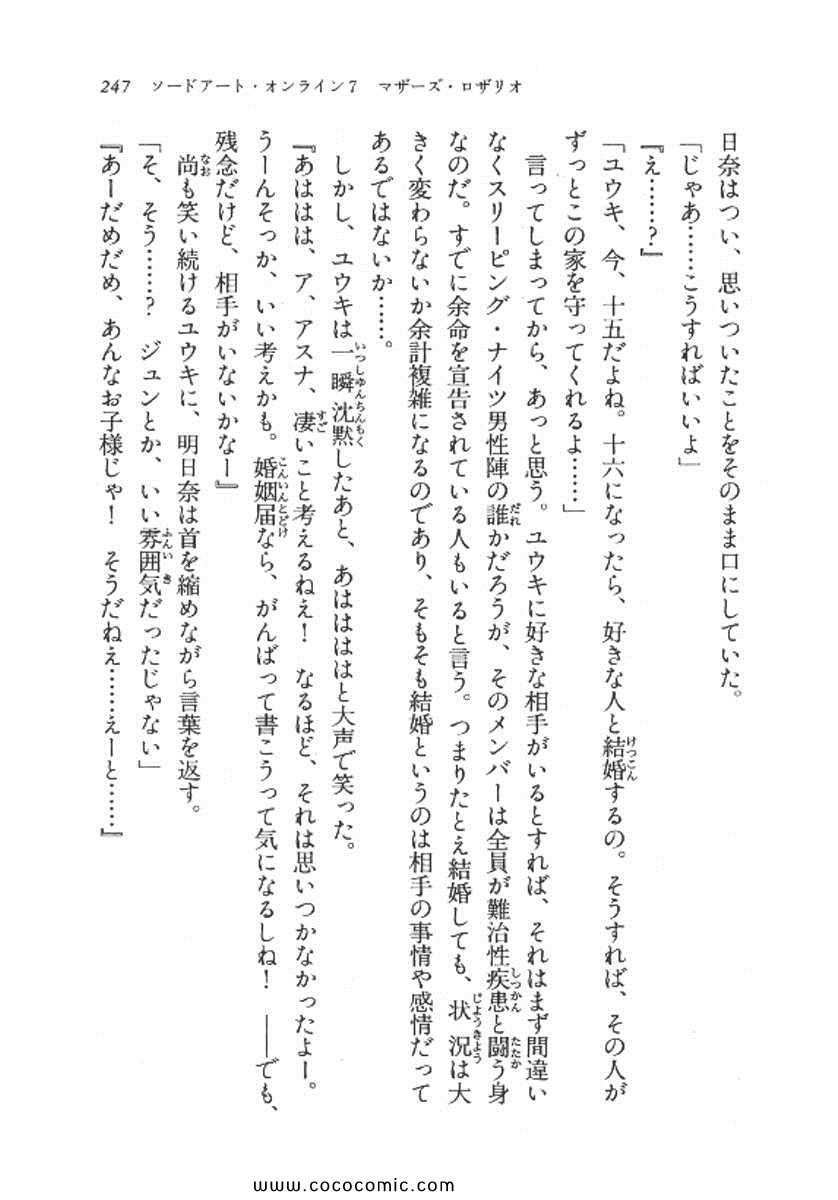 247　ソードアート・オンライン7　マザーズ・ロザリオ
日奈はつい、思いついたことをそのまま口にしていた。
「じゃあ……こうすればいいよ」
『え……？』
「ユウキ、今、十五だよね。十六になったら、好きな人と結婚するの。そうすれば、その人が
ずっとこの家を守ってくれるよ……」
言ってしまってから、あっと思う。ユウキに好きな相手がいるとすれば、それはまず間違い
なくスリーピング・ナイツ男性陣の誰かだろうが、そのメンバーは全員が難治性疾患と闘う身
なのだ。すでに余命を宣告されている人もいると言う。つまりたとえ結婚しても、状況は大
きく変わらないか余計複雑になるのであり、そもそも結婚というのは相手の事情や感情だって
あるではないか……。
しかし、ユウキは一瞬沈黙したあと、あははははと大声で笑った。
『あははは、ア、アスナ、凄いこと考えるねえ！　なるほど、それは思いつかなかったよー。
うーんそっか、いい考えかも。婚姻届なら、がんばって書こうって気になるしね！　――でも、
残念だけど、相手がいないかなー』
尚も笑い続けるユウキに、明日奈は首を縮めながら言葉を返す。
「そ、そう……？　ジュンとか、いい雰囲気だったじゃない」
『あーだめだめ、あんなお子様じゃ！　そうだねぇ……えーと……』
www.cococomic.com